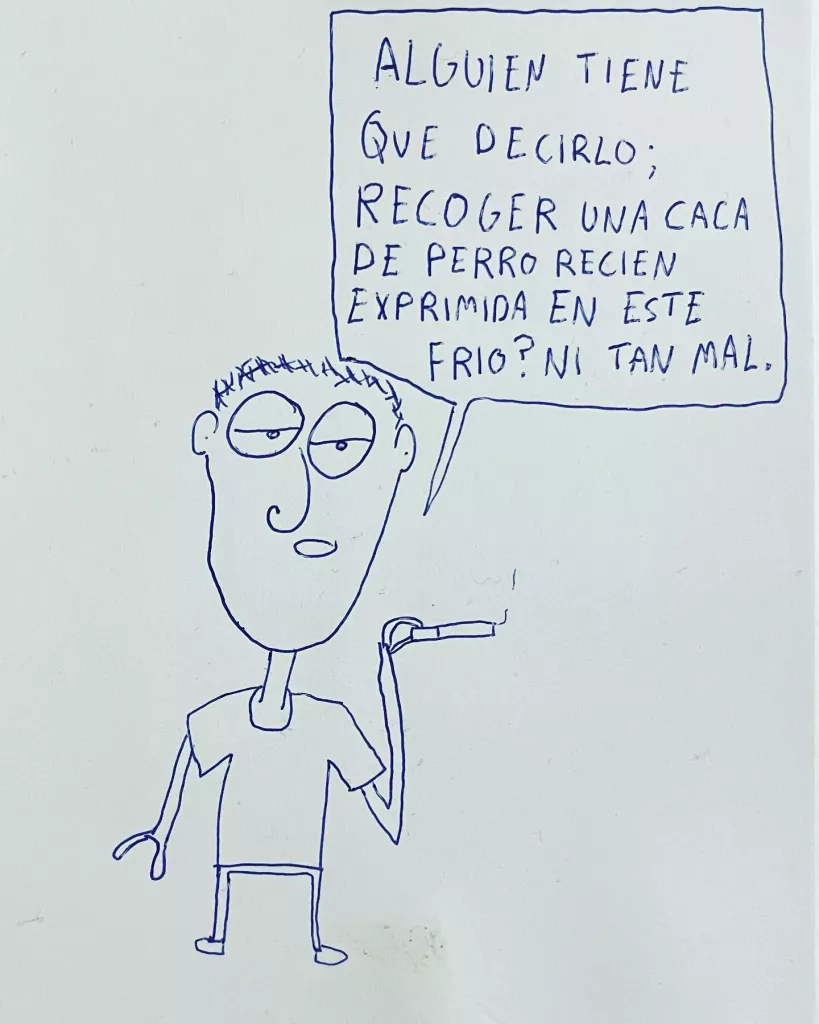 ALGUIEN TIENE
QUE DECIRLO;
RECOGER UNA CACA
DE PERRO RECIEN
EXPRIMIDA EN ESTE
FRIO? NI TAN MAL.